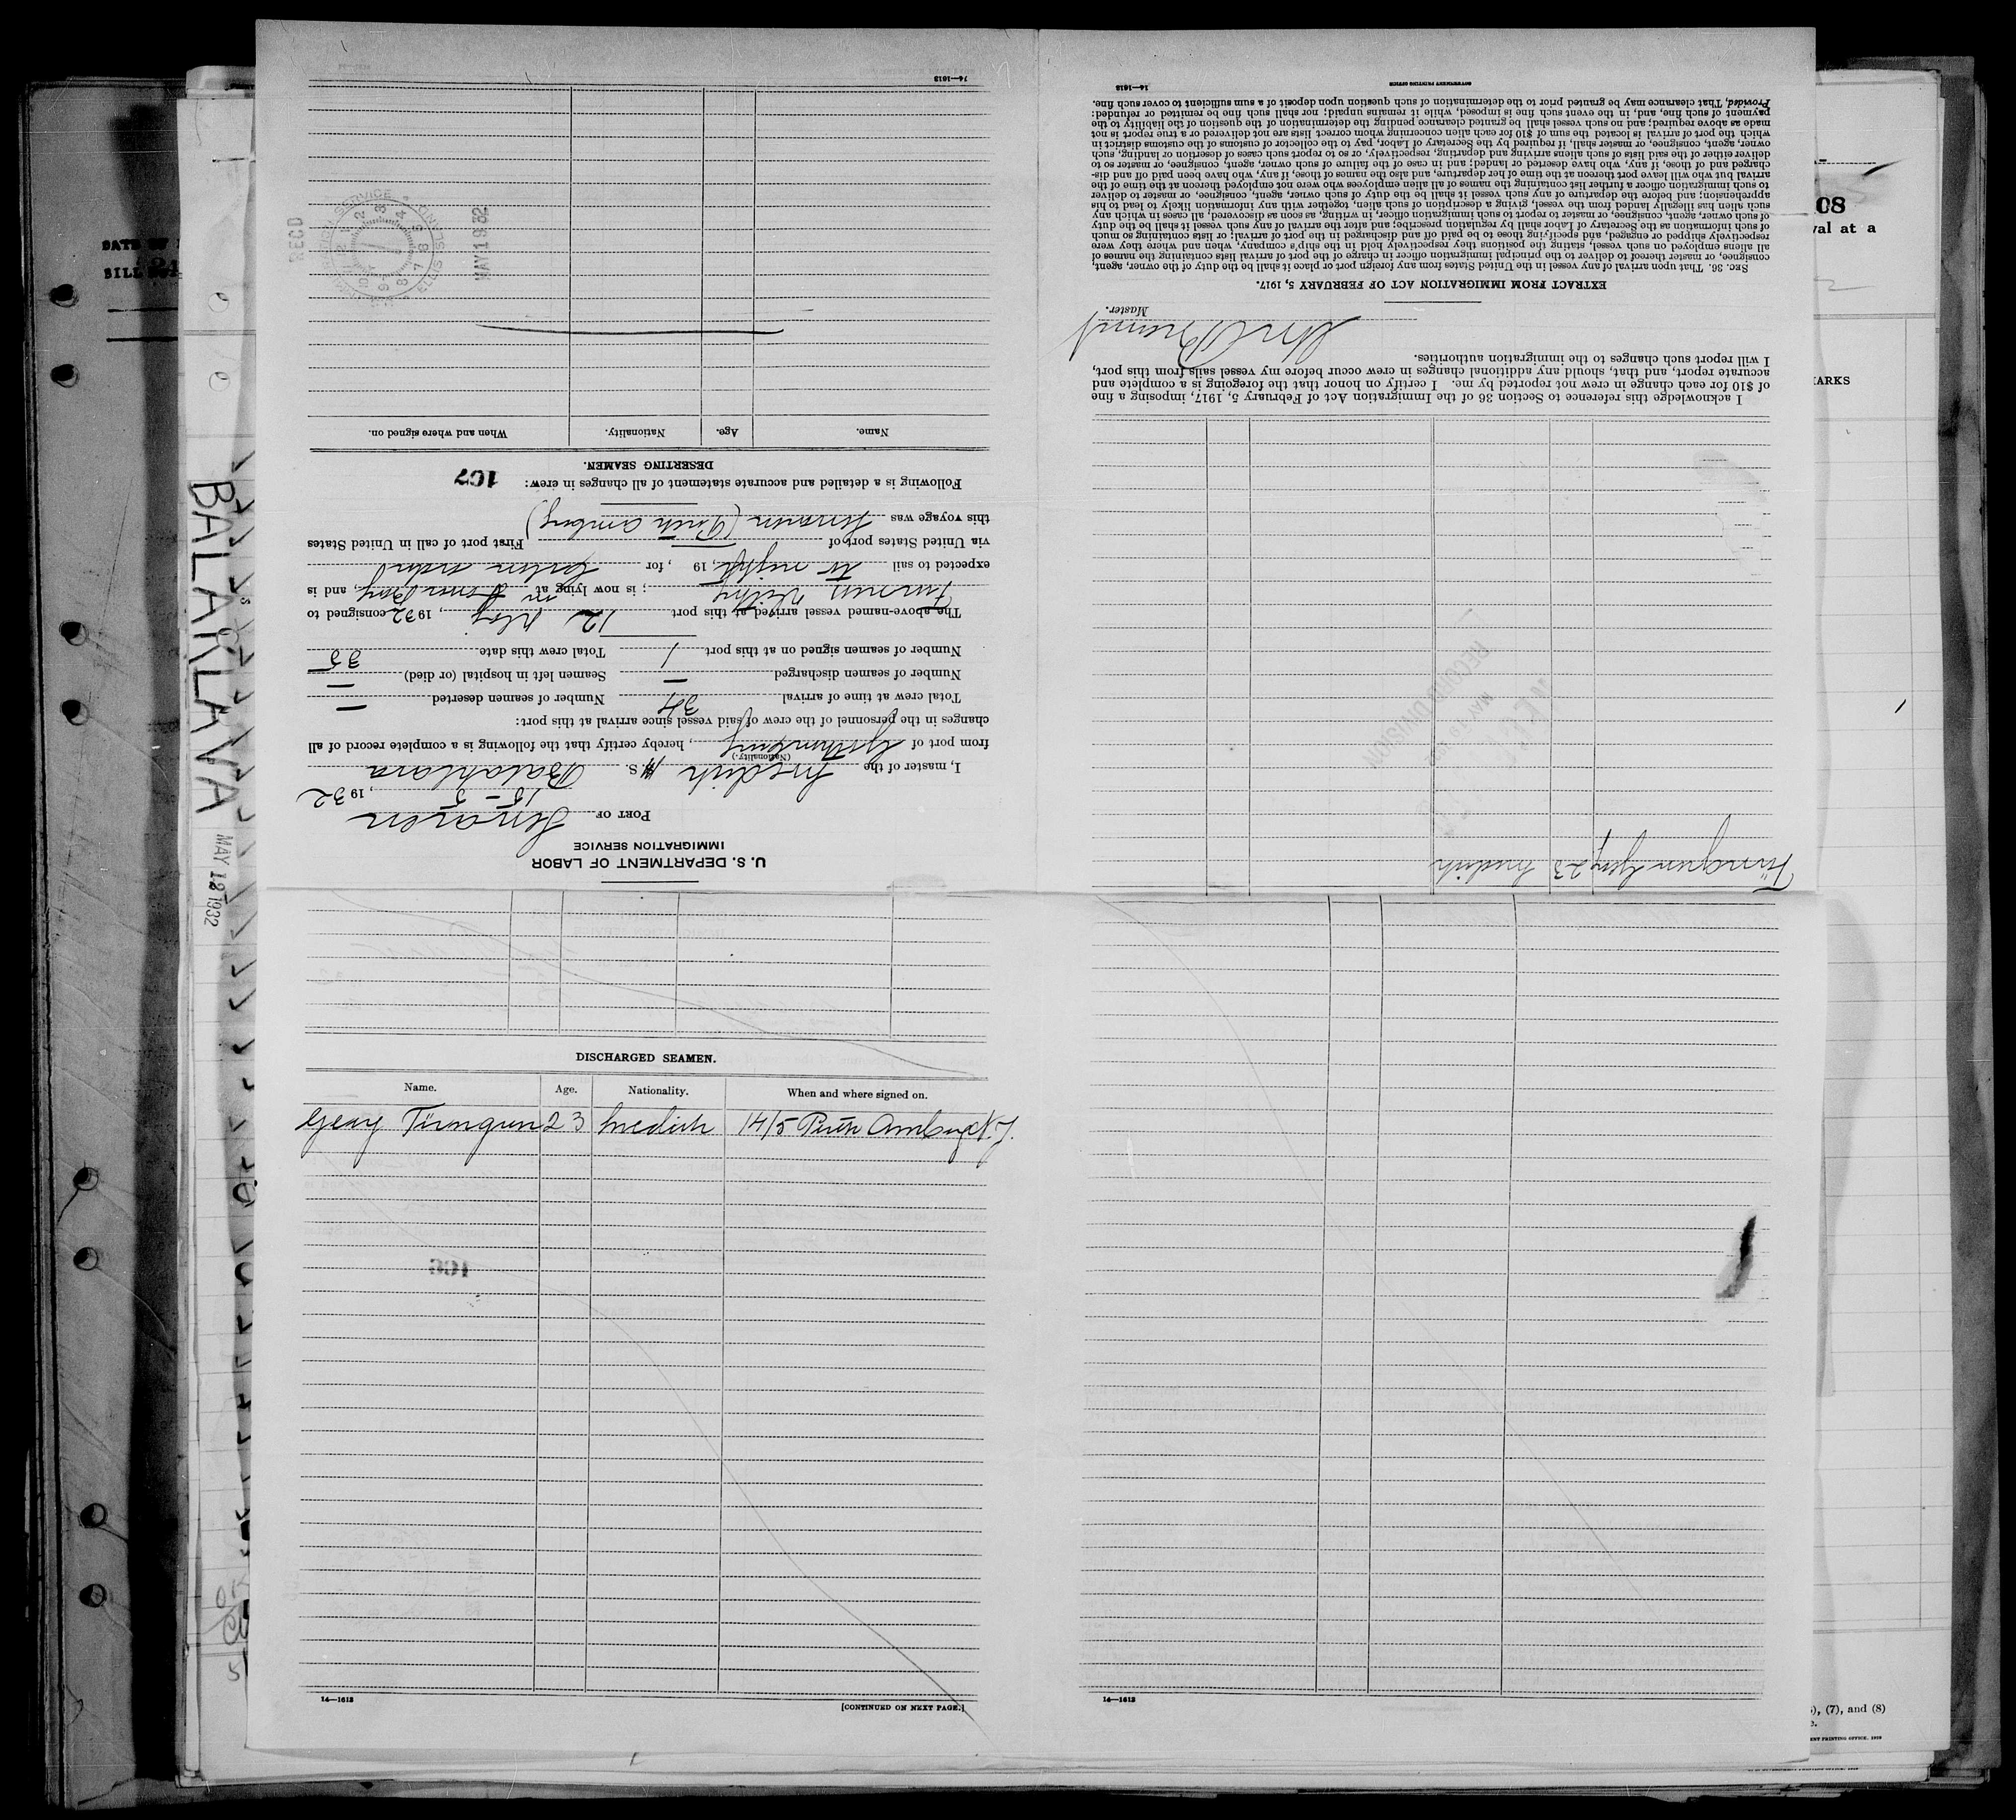 DATE OF
BILL NO.
BALAKLAVA
MAY 12 1932
08
val at a
ARKS
U. S. DEPARTMENT OF LABOR
IMMIGRATION SERVICE
PORT OF
15-5, 1932
I, master of the Swedish M S. Balaklava
(Nationality.)
from port of Gothenburg, hereby certify that the following is a complete record of all
changes in the personnel of the crew of said vessel since arrival at this port:
Total crew at time of arrival 34 Number of seamen deserted —
Number of seamen discharged — Seamen left in hospital (or died) —
Number of seamen signed on at this port 1 Total crew this date 35
The above-named vessel arrived at this port 12 May, 1932 consigned to
; is now lying at, and is
expected to sail to night, 19 , for
via United States port of First port of call in United States
this voyage was (Perth Amboy)
Following is a detailed and accurate statement of all changes in crew:
107
DESERTING SEAMEN.
Name. Age. Nationality. When and where signed on.
REC'D
IMMIGRATION SERVICE
ELLIS ISLAND
MAY 19 32
14—1613
DISCHARGED SEAMEN.
Name. Age. Nationality. When and where signed on.
Georg 23 Swedish 14/5 Perth Amboy N.J.
106
14—1613
[CONTINUED ON NEXT PAGE.]
23 Swedish
RECORD DIVISION
MAY
I acknowledge this reference to Section 36 of the Immigration Act of February 5, 1917, imposing a fine
of $10 for each change in crew not reported by me. I certify on honor that the foregoing is a complete and
accurate report, and that, should any additional changes in crew occur before my vessel sails from this port,
I will report such changes to the immigration authorities.
Master.
EXTRACT FROM IMMIGRATION ACT OF FEBRUARY 5, 1917.
SEC. 36. That upon arrival of any vessel in the United States from any foreign port or place it shall be the duty of the owner, agent,
consignee, or master thereof to deliver to the principal immigration officer in charge of the port of arrival lists containing the names of
all aliens employed on such vessel, stating the positions they respectively hold in the ship's company, when and where they were
respectively shipped or engaged, and specifying those to be paid off and discharged in the port of arrival; or lists containing so much
of such information as the Secretary of Labor shall by regulation prescribe; and after the arrival of any such vessel it shall be the duty
of such owner, agent, consignee, or master to report to such immigration officer, in writing, as soon as discovered, all cases in which any
such alien has illegally landed from the vessel, giving a description of such alien, together with any information likely to lead to his
apprehension; and before the departure of any such vessel it shall be the duty of such owner, agent, consignee, or master to deliver
to such immigration officer a further list containing the names of all alien employees who were not employed thereon at the time of the
arrival but who will leave port thereon at the time of her departure, and also the names of those, if any, who have been paid off and dis-
charged and of those, if any, who have deserted or landed; and in case of the failure of such owner, agent, consignee, or master so to
deliver either of the said lists of such aliens arriving and departing, respectively, or so to report such cases of desertion or landing, such
owner, agent, consignee, or master shall, if required by the Secretary of Labor, pay to the collector of customs of the customs district in
which the port of arrival is located the sum of $10 for each alien concerning whom correct lists are not delivered or a true report is not
made as above required; and no such vessel shall be granted clearance pending the determination of the question of the liability to the
payment of such fine, and, in the event such fine is imposed, while it remains unpaid; nor shall such fine be remitted or refunded:
Provided, That clearance may be granted prior to the determination of such question upon deposit of a sum sufficient to cover such fine.
14—1613
GOVERNMENT PRINTING OFFICE
14—1613
), (7), and (8)